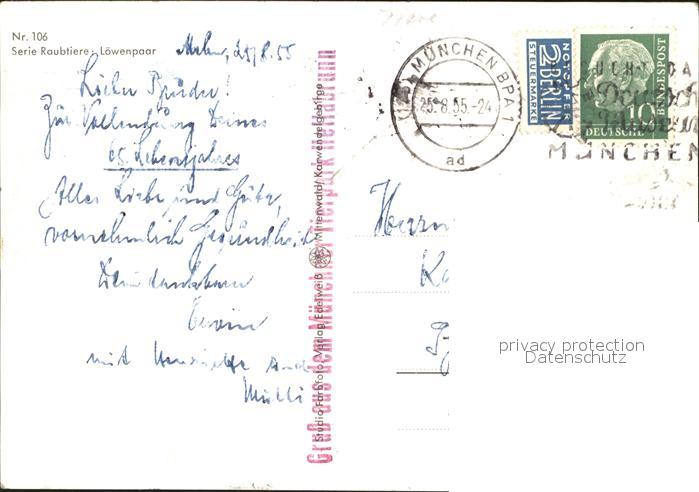 Nr. 106
Serie Raubtiere: Löwenpaar
25/8.55
Lieber Bruder!
Zur Vollendung Deines
65. Lebensjahres
Alles Liebe und Gute,
vornehmlich Gesundheit
Dein dankbarer
Erwin
mit Henriette und
Mutti
Gruß aus dem Münchner Tierpark Hellabrunn
Studio Farbfoto Verlag Edelweiß Mittenwald/Karwendel gebfree
MÜNCHEN BPA 1
25.8.55.-24
ad
NOTOPFER
2 BERLIN
STEUERMARKE
DEUTSCHE BUNDESPOST
10
BESUCHT DAS
Deutsche
Museum
MÜNCHEN
Herrn
privacy protection
Datenschutz